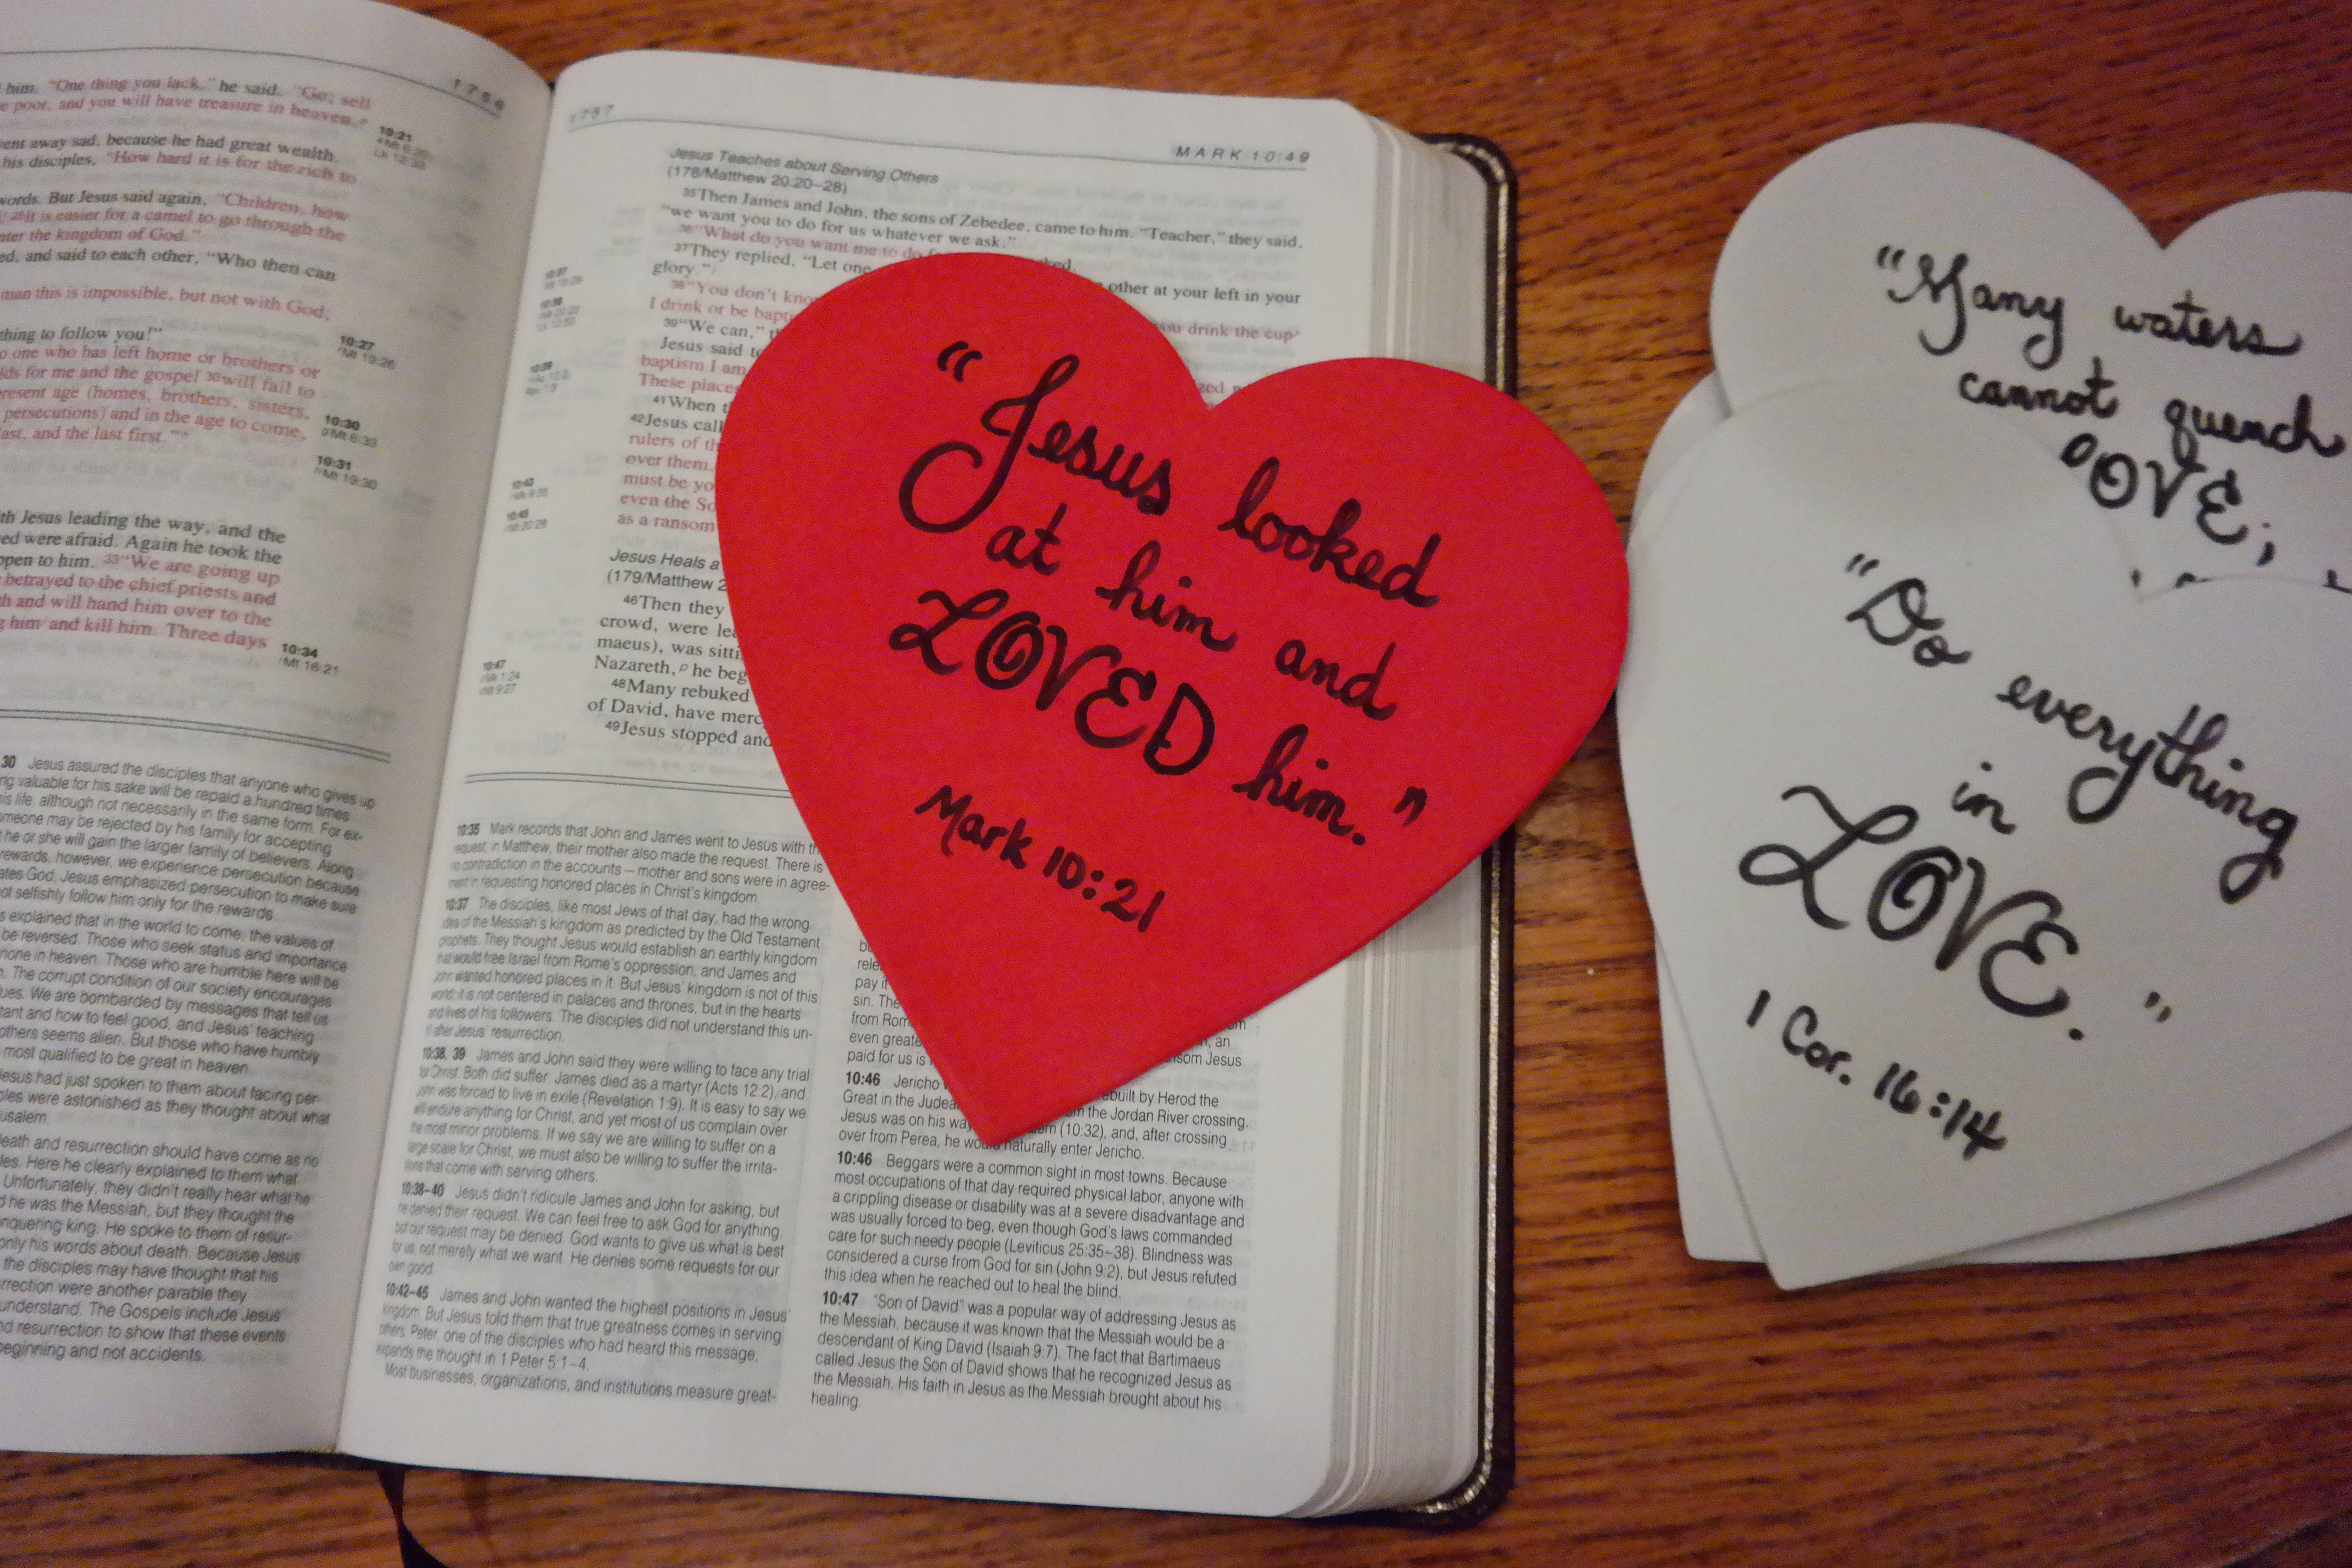 1756
him. "One thing you lack," he said. "Go, sell
poor, and you will have treasure in heaven.
10:21
ent away sad, because he had great wealth.
his disciples, "How hard it is for the rich to
words. But Jesus said again, "Children, how
It is easier for a camel to go through the
the kingdom of God."
ed, and said to each other, "Who then can
man this is impossible, but not with God;
thing to follow you!"
10:27
Mt 19:26
o one who has left home or brothers or
lds for me and the gospel 30will fail to
resent age (homes, brothers, sisters,
persecutions) and in the age to come,
10:30
Mt 6:33
ast, and the last first."
10:31
Mt 19:30
th Jesus leading the way, and the
ed were afraid. Again he took the
ppen to him. 33"We are going up
betrayed to the chief priests and
h and will hand him over to the
him and kill him. Three days
10:34
Mt 16:21
30 Jesus assured the disciples that anyone who gives up
ng valuable for his sake will be repaid a hundred times
his life, although not necessarily in the same form. For ex-
omeone may be rejected by his family for accepting
he or she will gain the larger family of believers. Along
rewards, however, we experience persecution because
ates God. Jesus emphasized persecution to make sure
ot selfishly follow him only for the rewards.
s explained that in the world to come, the values of
be reversed. Those who seek status and importance
none in heaven. Those who are humble here will be
The corrupt condition of our society encourages
ues. We are bombarded by messages that tell us
tant and how to feel good, and Jesus' teaching
others seems alien. But those who have humbly
most qualified to be great in heaven.
Jesus had just spoken to them about facing per-
ples were astonished as they thought about what
usalem.
death and resurrection should have come as no
les. Here he clearly explained to them what
Unfortunately, they didn't really hear what he
d he was the Messiah, but they thought the
nquering king. He spoke to them of resur-
only his words about death. Because Jesus
the disciples may have thought that his
rrection were another parable they
understand. The Gospels include Jesus'
nd resurrection to show that these events
beginning and not accidents.
1757
MARK 10:49
Jesus Teaches about Serving Others
(178/Matthew 20:20–28)
35Then James and John, the sons of Zebedee, came to him. "Teacher," they said,
"we want you to do for us whatever we ask."
36"What do you want me to do
37They replied, "Let one other at your left in your
glory."
38"You don't you drink the cup
I drink or be
39"We can,"
Jesus said
baptism I am
These
41When
42Jesus
rulers of
over them.
must be
even the
as a ransom
Jesus Heals a
(179/Matthew
46Then they
crowd, were
maeus), was
Nazareth, he
48Many rebuked
of David, have
49Jesus stopped and
10:35 Mark records that John and James went to Jesus with
request; in Matthew, their mother also made the request. There is
no contradiction in the accounts — mother and sons were in agree-
ment in requesting honored places in Christ's kingdom.
10:37 The disciples, like most Jews of that day, had the wrong
idea of the Messiah's kingdom as predicted by the Old Testament
prophets. They thought Jesus would establish an earthly kingdom
that would free Israel from Rome's oppression, and James and
John wanted honored places in it. But Jesus' kingdom is not of this
world; it is not centered in palaces and thrones, but in the hearts
and lives of his followers. The disciples did not understand this un-
til after Jesus' resurrection.
10:38, 39 James and John said they were willing to face any trial
for Christ. Both did suffer. James died as a martyr (Acts 12:2), and
John was forced to live in exile (Revelation 1:9). It is easy to say we
will endure anything for Christ, and yet most of us complain over
the most minor problems. If we say we are willing to suffer on a
large scale for Christ, we must also be willing to suffer the irrita-
tions that come with serving others.
10:38–40 Jesus didn't ridicule James and John for asking, but
he denied their request. We can feel free to ask God for anything,
but our request may be denied. God wants to give us what is best
for us, not merely what we want. He denies some requests for our
own good.
10:42–45 James and John wanted the highest positions in Jesus'
kingdom. But Jesus told them that true greatness comes in serving
others. Peter, one of the disciples who had heard this message,
expands the thought in 1 Peter 5:1–4.
Most businesses, organizations, and institutions measure great-
pay it
sin. The
from
even an
paid for us is Jesus
10:46 Jericho Herod the
Great in the the Jordan River crossing.
Jesus was on his way (10:32), and, after crossing
over from Perea, he would naturally enter Jericho.
10:46 Beggars were a common sight in most towns. Because
most occupations of that day required physical labor, anyone with
a crippling disease or disability was at a severe disadvantage and
was usually forced to beg, even though God's laws commanded
care for such needy people (Leviticus 25:35–38). Blindness was
considered a curse from God for sin (John 9:2), but Jesus refuted
this idea when he reached out to heal the blind.
10:47 "Son of David" was a popular way of addressing Jesus as
the Messiah, because it was known that the Messiah would be a
descendant of King David (Isaiah 9:7). The fact that Bartimaeus
called Jesus the Son of David shows that he recognized Jesus as
the Messiah. His faith in Jesus as the Messiah brought about his
healing.
"Jesus looked
at him and
LOVED him."
Mark 10:21
"Many waters
cannot quench
OVE;
"Do everything
in
LOVE."
1 Cor. 16:14